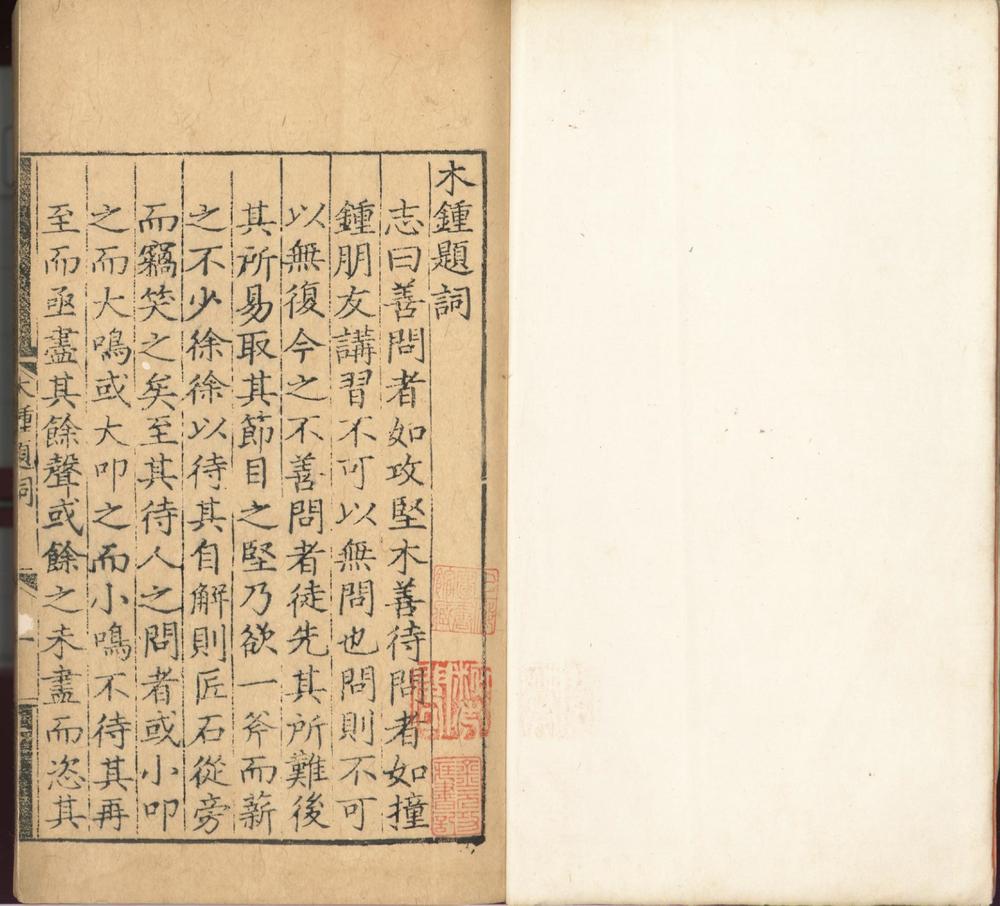 木鍾題詞
志曰善問者如攻堅木善待問者如撞
鍾朋友講習不可以無問也問則不可
以無復今之不善問者徒先其所難後
其所易取其節目之堅乃欲一斧而薪
之不少徐徐以待其自解則匠石從旁
而竊笑之矣至其待人之問者或小叩
之而大鳴或大叩之而小鳴不待其再
至而亟盡其餘聲或餘之未盡而恣其
木鍾題詞
一